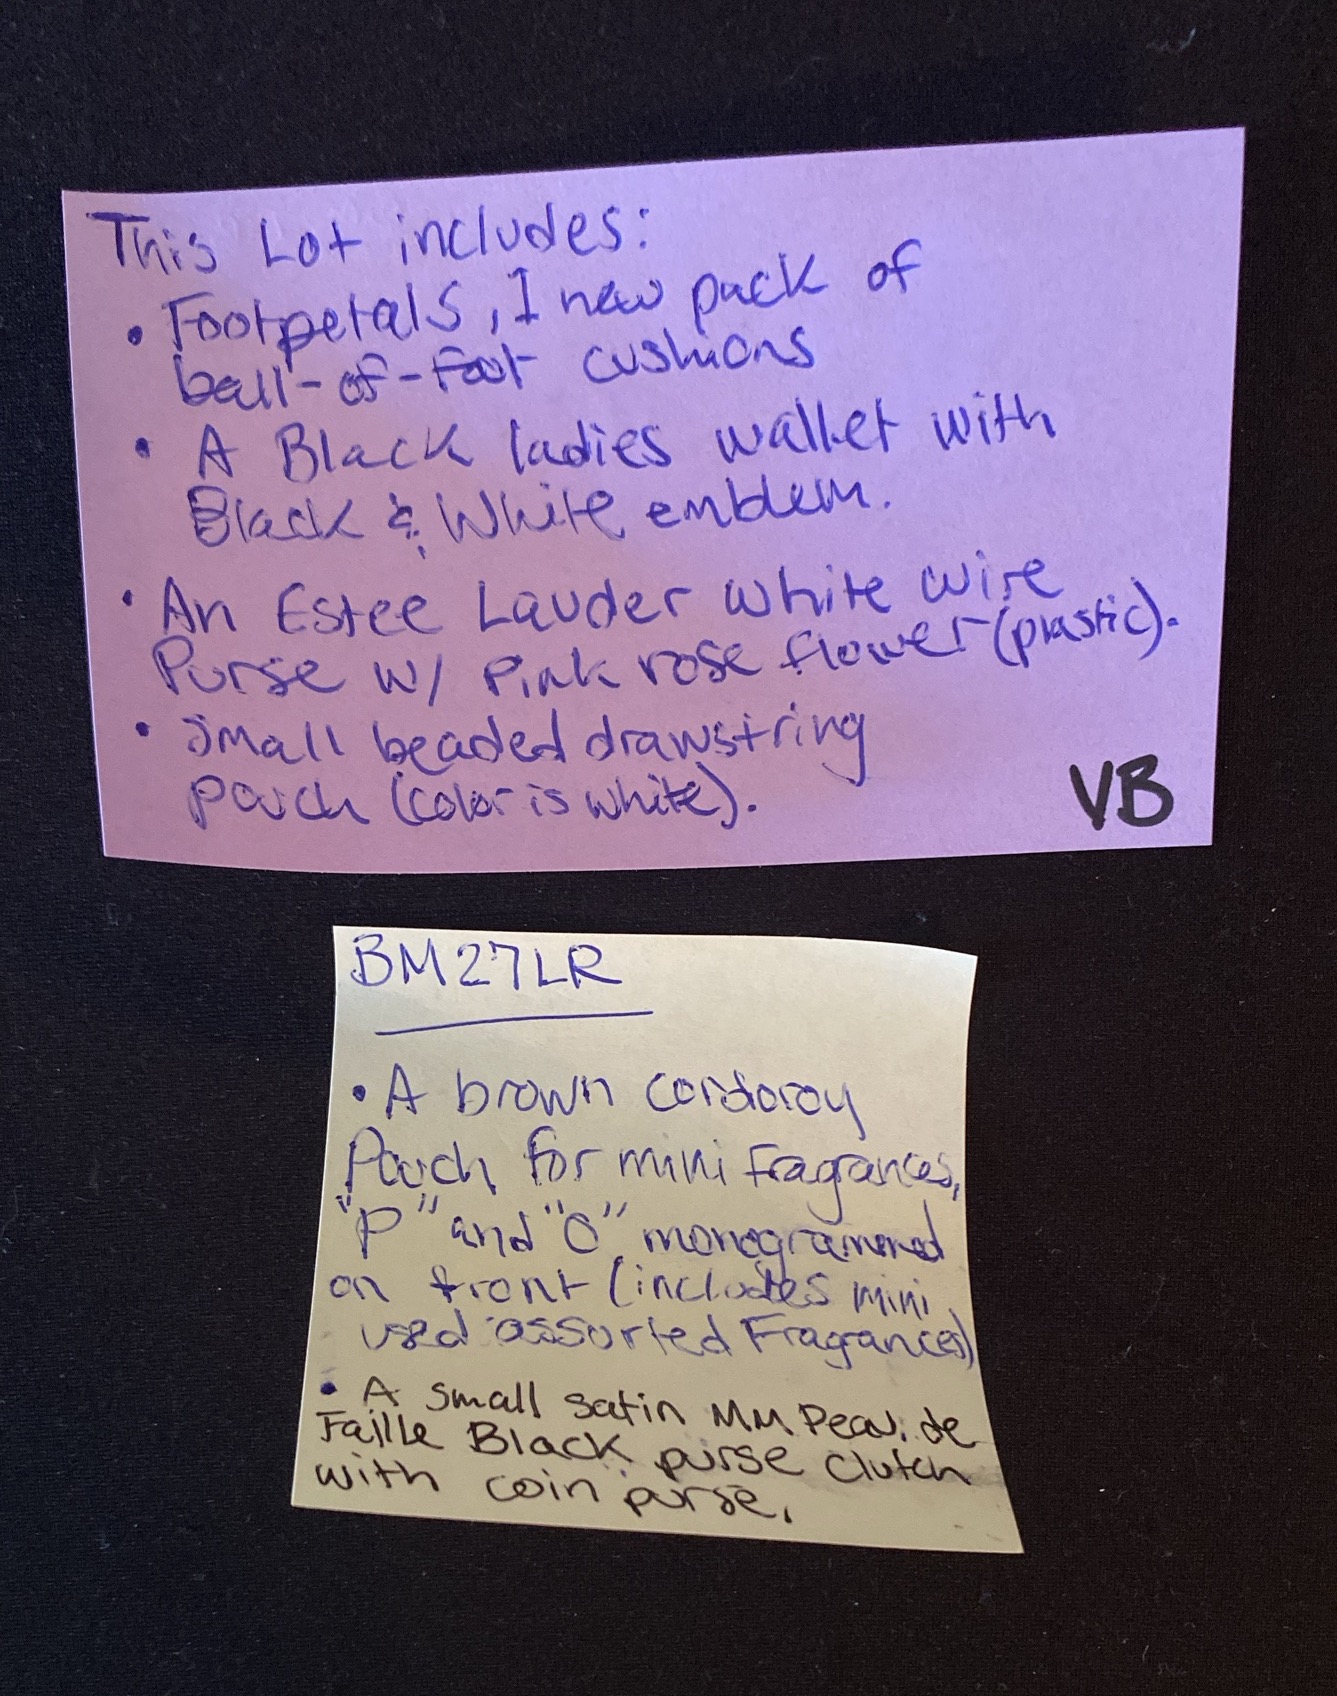 This Lot includes:
• Footpetals, 1 new pack of
ball-of-foot cushions
• A Black ladies wallet with
Black & White emblem.
• An Estee Lauder white wire
Purse w/ Pink rose flower (plastic).
• Small beaded drawstring
pouch (color is white).
VB
BM27LR
• A brown cordoroy
Pouch for mini fragrances,
"P" and "O" monogrammed
on front (includes mini
used assorted Fragrances)
• A small satin MM Peau de
Faille Black purse clutch
with coin purse.